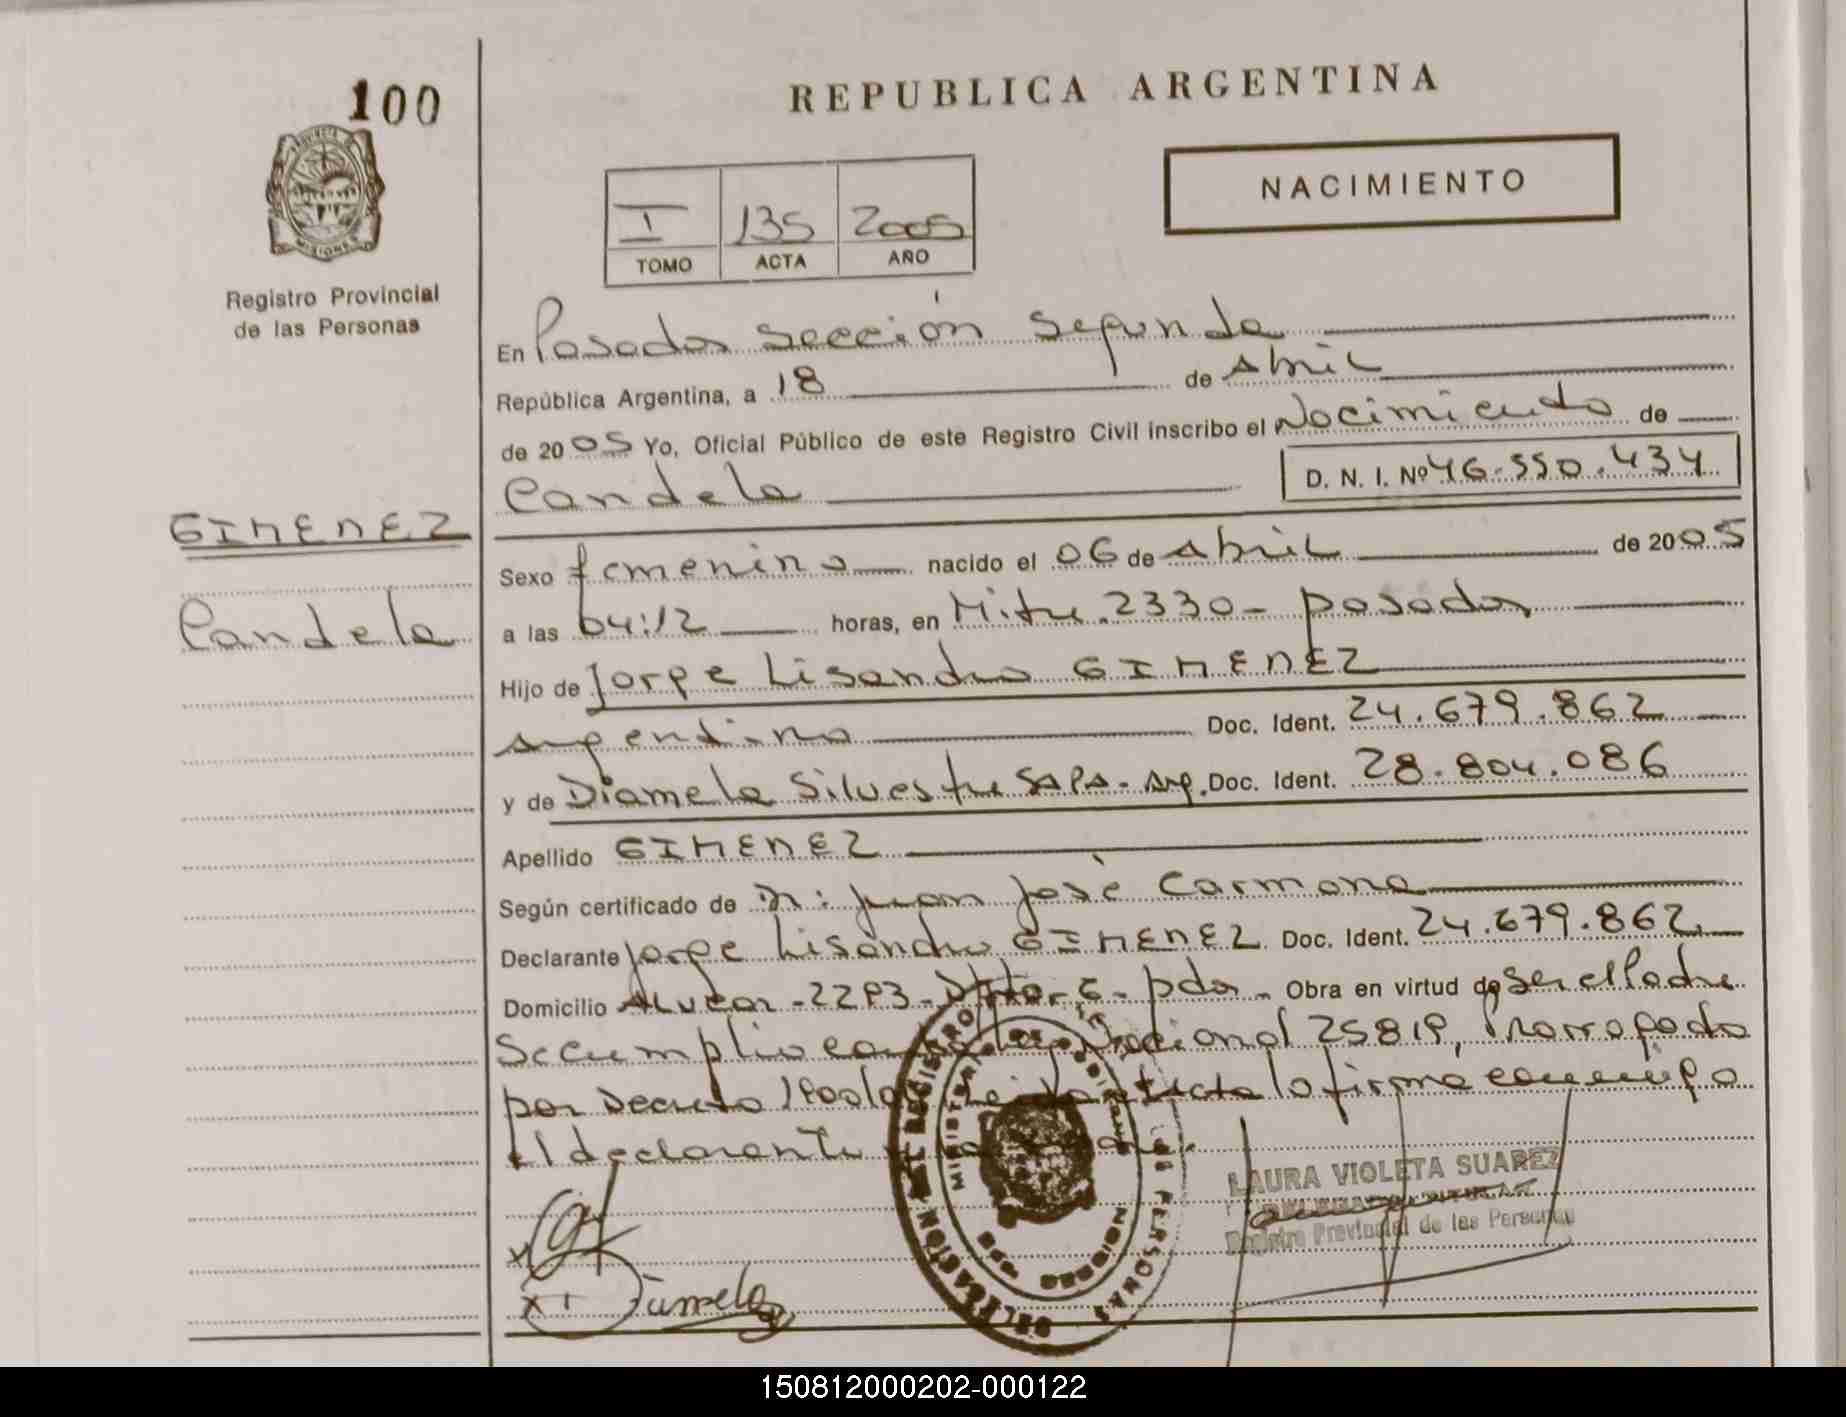 100
MISIONES
Registro Provincial
de las Personas
REPUBLICA ARGENTINA
NACIMIENTO
I 135 2005
TOMO ACTA AÑO
En Posadas sección Segunda
República Argentina, a 18 de Abril
de 2005 Yo, Oficial Público de este Registro Civil inscribo el Nacimiento de
Candela D. N. I. Nº 46.550.434
GIMENEZ
Candela
Sexo femenino nacido el 06 de Abril de 2005
a las 04:12 horas, en Mitre 2330 - Posadas
Hijo de Jorge Lisandro GIMENEZ
argentino Doc. Ident. 24.679.862
y de Diamela Silvestre SAPA - Arg. Doc. Ident. 28.804.086
Apellido GIMENEZ
Según certificado de Dr: Juan José Carmona
Declarante Jorge Lisandro GIMENEZ Doc. Ident. 24.679.862
Domicilio Alvear - 2293 - Dpto - 6 - pdas - Obra en virtud de Ser el Padre
Se cumplio con la Ley Nacional 25819, Prorrogado
por Decreto Leida el acta lo firma conmigo
El declarante
Diamela
DELEGACIÓN DEL REGISTRO DE LAS PERSONAS
MINISTERIO DE GOBIERNO
MISIONES
LAURA VIOLETA SUAREZ
DELEGADA TITULAR
Registro Provincial de las Personas
150812000202-000122